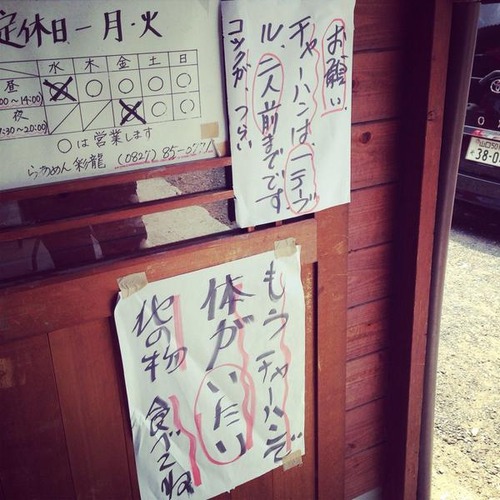 定休日－月・火
水 木 金 土 日
昼
00～14:00)
夜
7:30～20:00)
○は営業します
らぁめん 彩龍 (0827) 85-
お願い、
チャーハンは、一テーブ
ル、二人前までです
コックが、つらい
もうチャーハンで
体がいたい
他の物 食べてね
38-0